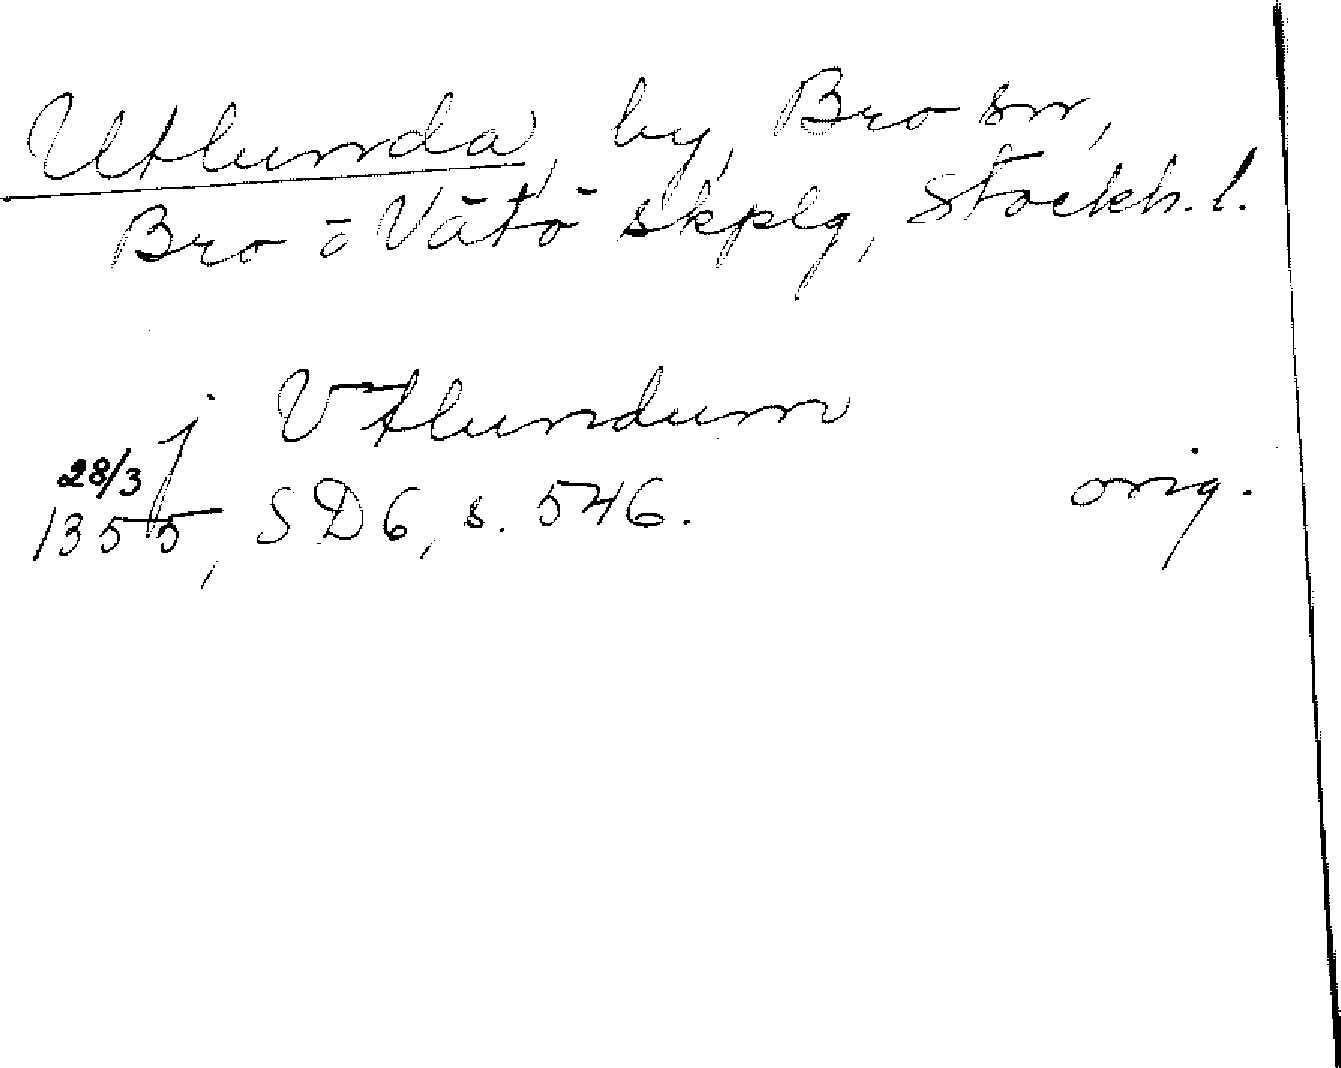 Utlunda, by, Bro sn,
Bro o Vätö skplg, Stockh. l.
j Vtlundum
28/3
1355, SD 6, s. 546. orig.